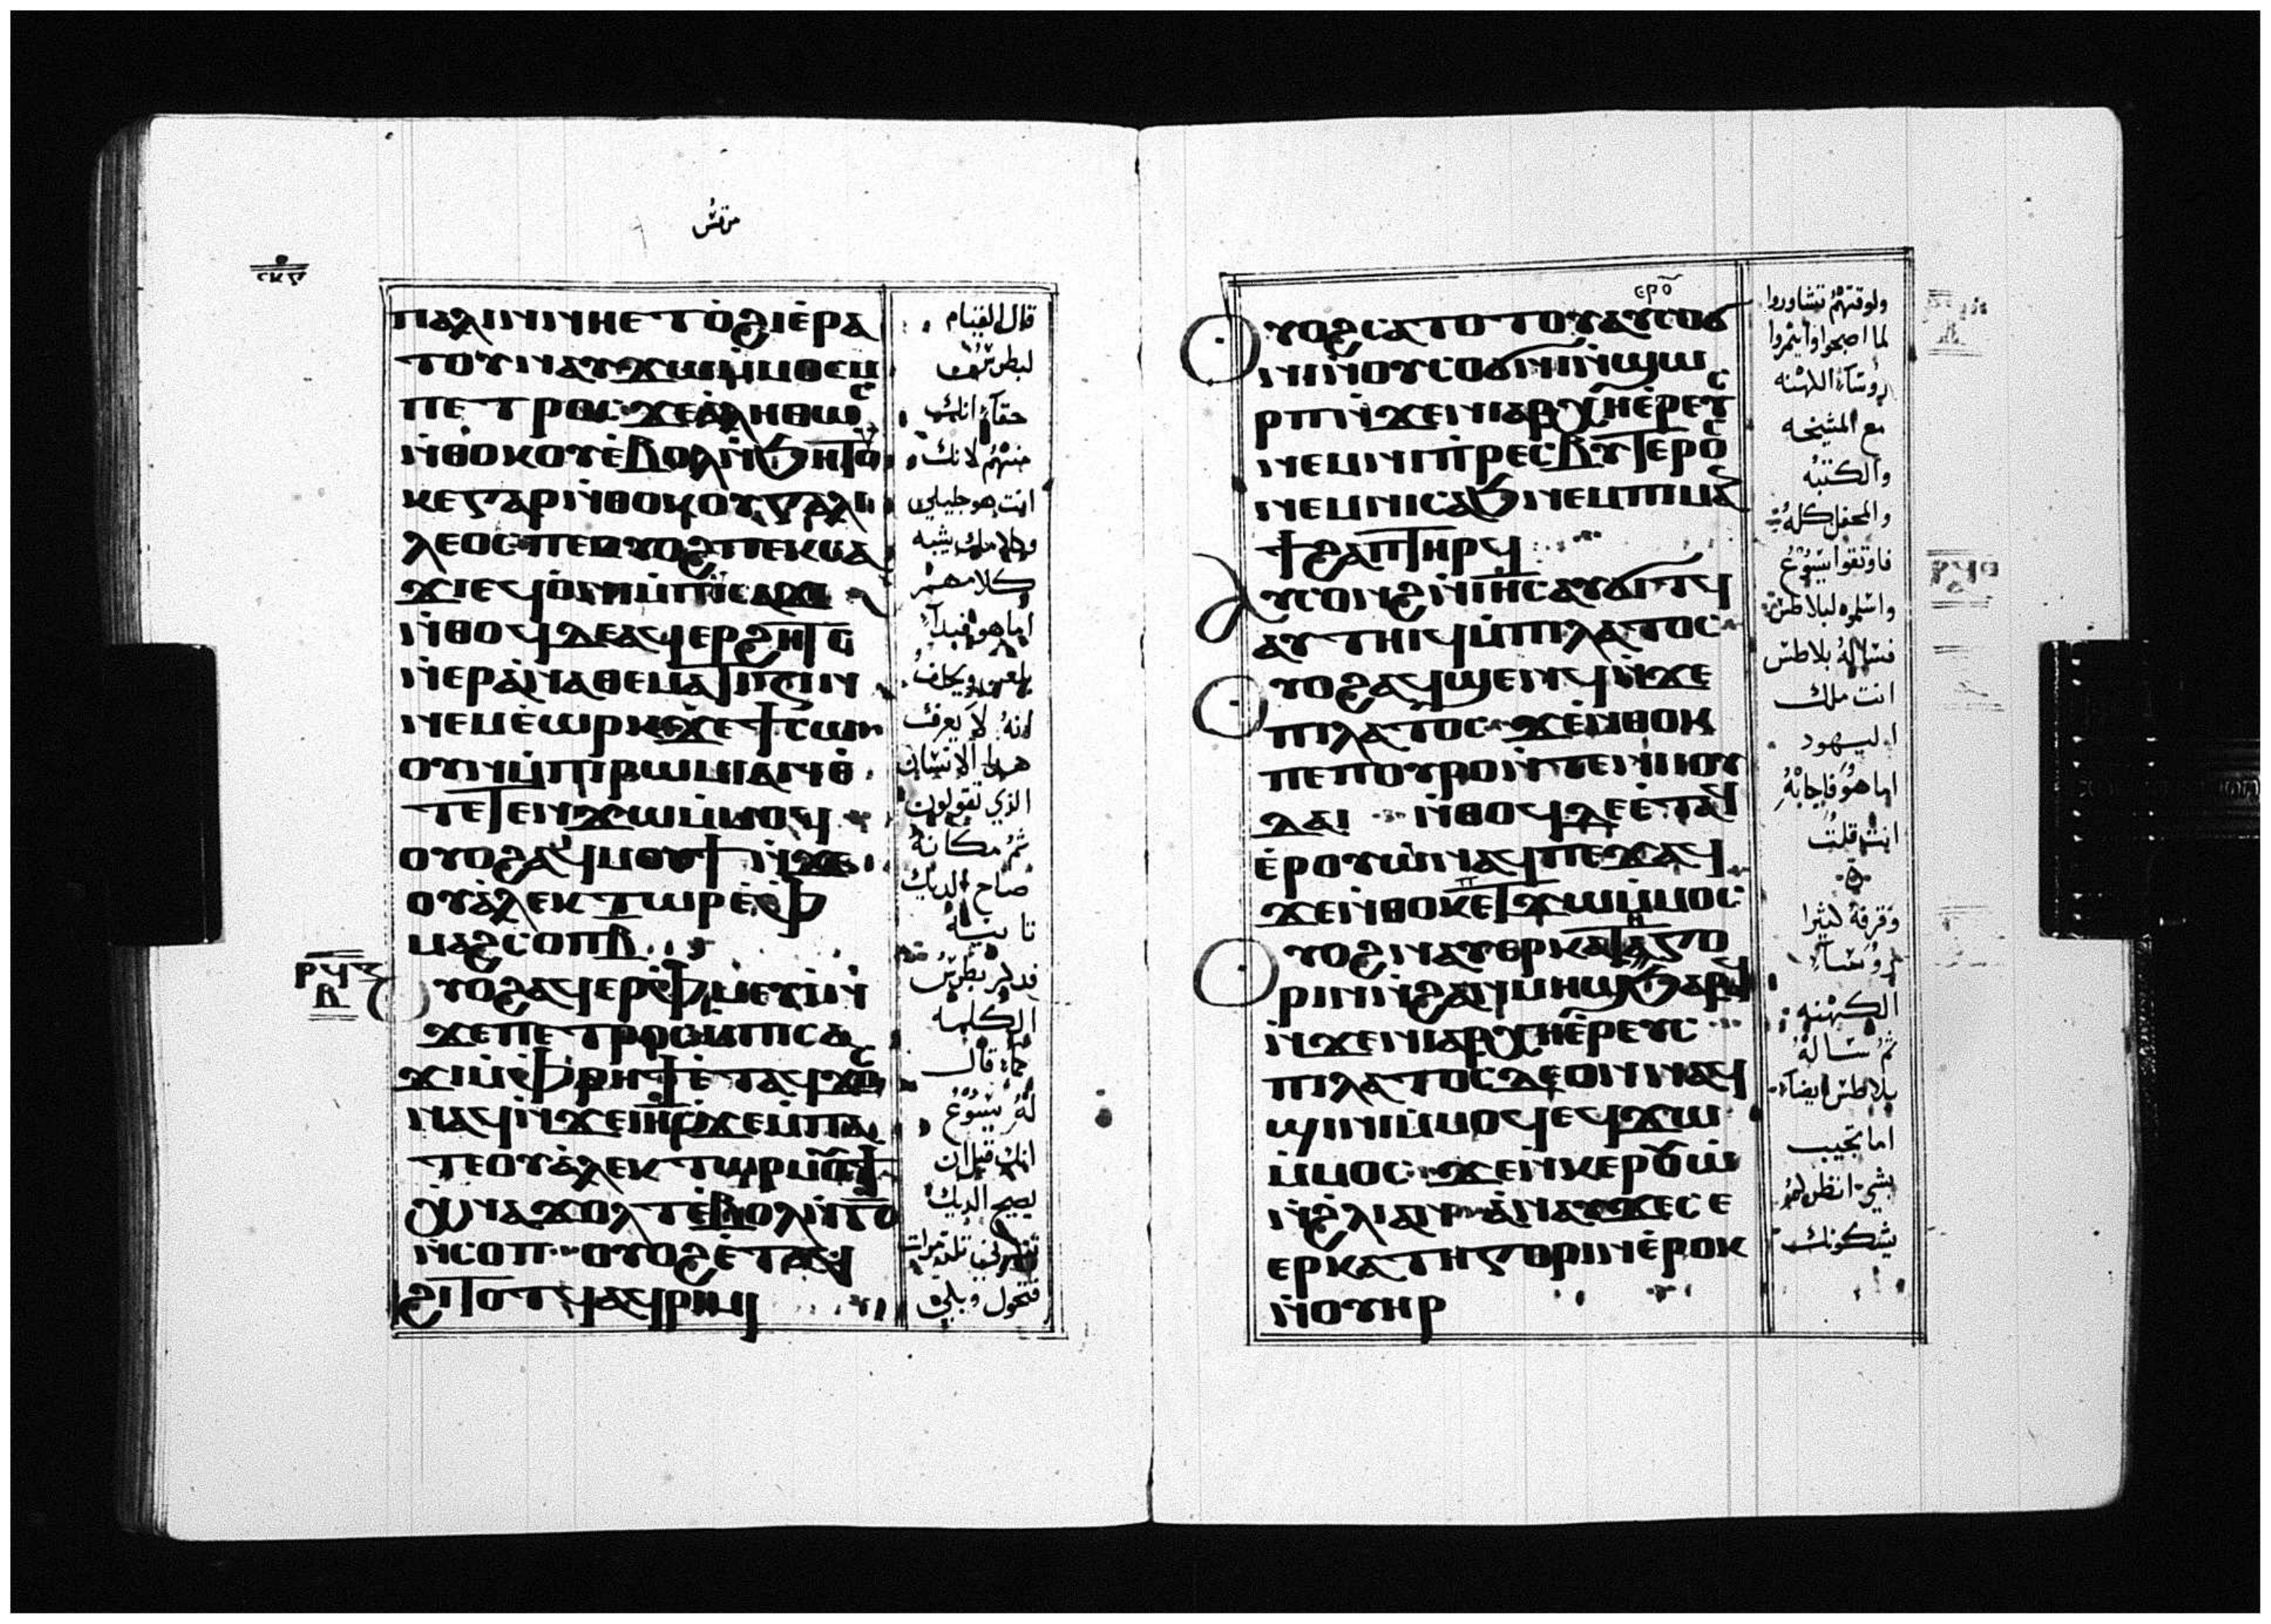 مرقس
ⲥⲕⲋ
ⲡⲁⲗⲓⲛ ⲛⲏⲉⲧⲟϩⲓ ⲉⲣⲁ
ⲧⲟⲩ ⲛⲁⲩϫⲱ ⲙⲙⲟⲥ ⲙ
ⲡⲉⲧⲣⲟⲥ ϫⲉ ⲁⲗⲏⲑⲱⲥ
ⲛⲑⲟⲕ ⲟⲩⲉⲃⲟⲗ ⲛϧⲏⲧⲟⲩ
ⲕⲉ ⲅⲁⲣ ⲛⲑⲟⲕ ⲟⲩⲅⲁⲗⲓ
ⲗⲉⲟⲥ ⲡⲉ ⲟⲩⲟϩ ⲡⲉⲕⲥⲁ
ϫⲓ ⲉϥⲟⲛⲓ ⲙⲡⲓⲥⲁϫⲓ
ⲛⲑⲟϥ ⲇⲉ ⲁϥⲉⲣϩⲏⲧⲥ
ⲛⲉⲣⲁⲛⲁⲑⲉⲙⲁⲧⲓⲍⲓⲛ
ⲛⲉⲙ ⲉⲱⲣⲕ ϫⲉ ϯⲥⲱⲟⲩⲛ
ⲙⲡⲓⲣⲱⲙⲓ ⲁⲛ ⲛⲑ
ⲧⲉⲧⲉⲛϫⲱ ⲙⲙⲟϥ
ⲟⲩⲟϩ ⲁϥⲙⲟⲩϯ ⲛϫⲉ
ⲟⲩⲁⲗⲉⲕⲧⲱⲣ ⲙⲫ
ⲙⲁϩⲥⲟⲡ ⲃ
ⲣϥⲍ
ⲃ
ⲟⲩⲟϩ ⲁϥⲉⲣⲫⲙⲉⲩⲓ ⲛ
ϫⲉ ⲡⲉⲧⲣⲟⲥ ⲙⲡⲓⲥⲁ
ϫⲓ ⲙⲫⲣⲏϯ ⲉⲧⲁϥϫⲟⲥ
ⲛⲁϥ ⲛϫⲉ ⲓⲏⲥ ϫⲉ ⲙⲡⲁ
ⲧⲉ ⲟⲩⲁⲗⲉⲕⲧⲱⲣ ⲙⲟⲩϯ
ⲭⲛⲁϫⲟⲗⲧ ⲉⲃⲟⲗ ⲛⲅ
ⲛⲥⲟⲡ ⲟⲩⲟϩ ⲉⲧⲁϥ
ϩⲓⲧⲟⲧϥ ⲁϥⲣⲓⲙⲓ
قال القيام
لبطرس
حقا انك
منهم لانك
انت هو جليلي
وكلامك يشبه
كلامهم
اما هو فبدا
يلعن ويحلف
انه لا يعرف
هذا الانسان
الذي تقولون
ثم مكانه
صاح الديك
ثانيه
فذكر بطرس
الكلمه
كما قال
له يسوع
انك قبل ان
يصيح الديك
مرات
فتحول وبكي
ⲟⲩⲟϩ ⲥⲁⲧⲟⲧⲟⲩ ⲁⲩⲥⲟϭ
ⲛⲓ ⲛⲟⲩⲥⲟϭⲛⲓ ⲛϣⲱ
ⲣⲡ ⲛϫⲉ ⲛⲓⲁⲣⲭⲏⲉⲣⲉⲩⲥ
ⲛⲉⲙ ⲛⲓⲡⲣⲉⲥⲃⲩⲧⲉⲣⲟⲥ
ⲛⲉⲙ ⲛⲓⲥⲁϧ ⲛⲉⲙ ⲡⲓⲙⲁ
ⲛϯϩⲁⲡ ⲧⲏⲣϥ
ⲁⲩⲥⲟⲛϩ ⲛⲓⲏⲥ ⲁⲩϭⲓⲧϥ
ⲁⲩⲧⲏⲓϥ ⲙⲡⲓⲗⲁⲧⲟⲥ
ⲟⲩⲟϩ ⲁϥϣⲉⲛϥ ⲛϫⲉ
ⲡⲓⲗⲁⲧⲟⲥ ϫⲉ ⲛⲑⲟⲕ
ⲡⲉ ⲡⲟⲩⲣⲟ ⲛⲧⲉ ⲛⲓⲓⲟⲩ
ⲇⲁⲓ ⲛⲑⲟϥ ⲇⲉ ⲉⲧⲁϥ
ⲉⲣⲟⲩⲱ ⲛⲁϥ ⲡⲉϫⲁϥ
ϫⲉ ⲛⲑⲟⲕ ⲡⲉⲧϫⲱ ⲙⲙⲟⲥ
ⲟⲩⲟϩ ⲛⲁⲩⲉⲣⲕⲁⲧⲏⲅⲟ
ⲣⲓⲛ ⲛϩⲁⲛⲙⲏϣ ϧⲁⲣⲟϥ
ⲛϫⲉ ⲛⲓⲁⲣⲭⲏⲉⲣⲉⲩⲥ
ⲡⲓⲗⲁⲧⲟⲥ ⲇⲉ ⲟⲛ ⲛⲁϥ
ϣⲓⲛⲓ ⲙⲙⲟϥ ⲉϥϫⲱ
ⲙⲙⲟⲥ ϫⲉ ⲛⲕⲉⲣⲟⲩⲱ
ⲛϩⲗⲓ ⲁⲛ ⲁⲛⲁⲩ ϫⲉ ⲥⲉ
ⲉⲣⲕⲁⲧⲏⲅⲟⲣⲓⲛ ⲉⲣⲟⲕ
ⲛⲟⲩⲏⲣ
ولوقتهم تشاوروا
لما اصبحوا وايتمروا
رؤسآ الكهنه
مع المشيخه
والكتبه
والمحفل كله
فاوثقوا يسوع
واسلموه لبلاطس
فساله بلاطس
انت ملك
اليهود
اما هو فاجابه
انت قلت
وقرفه كثيرا
رؤسآ
الكهنه
ثم ساله
بلاطس ايضا
اما تجيب
بشي انظر
يشكونك